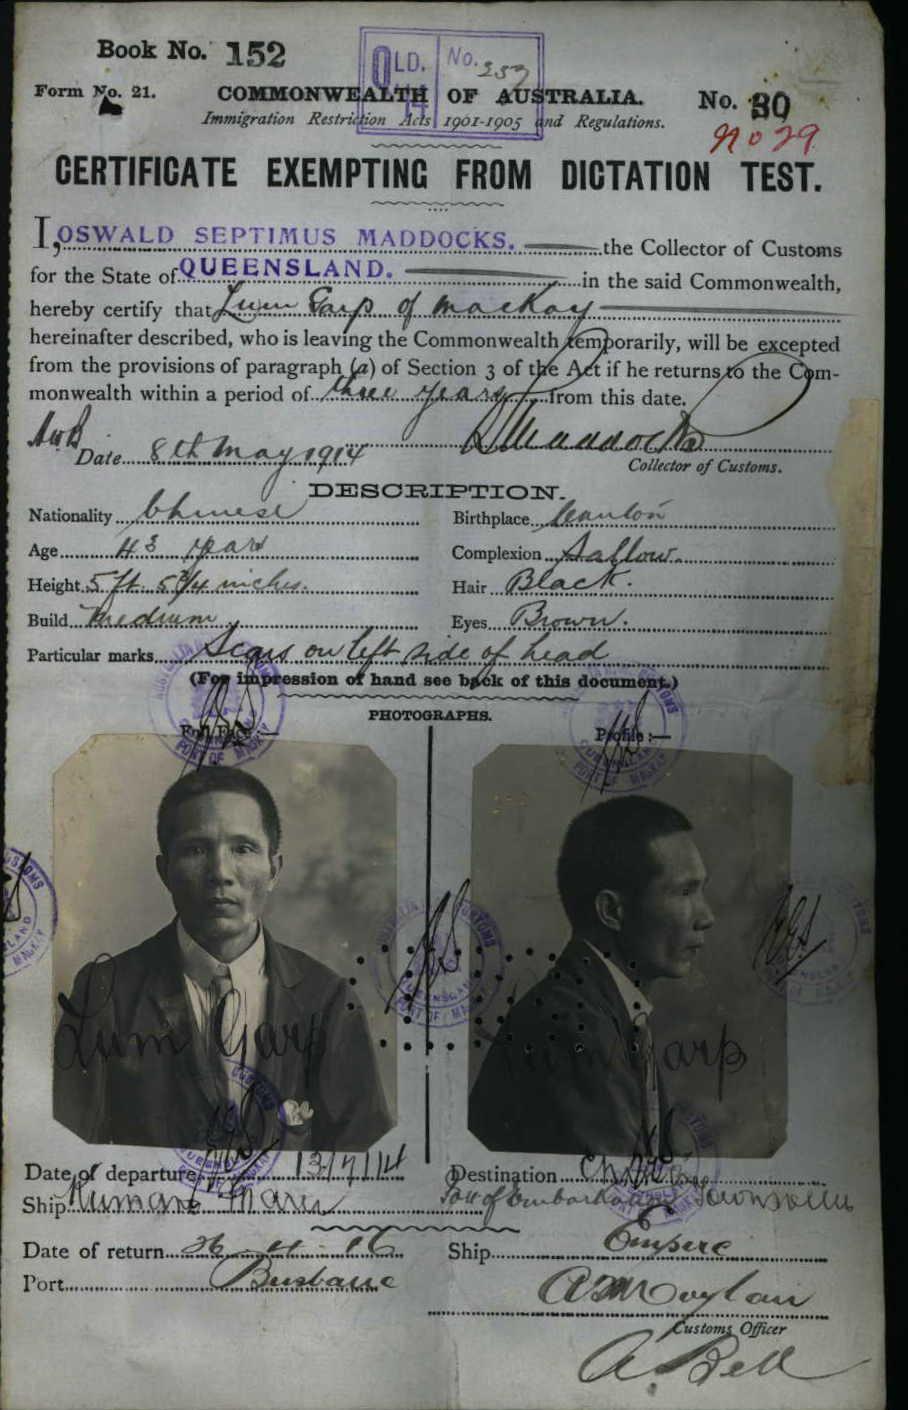 Book No. 152
QLD. No. 257
Form No. 21.
COMMONWEALTH OF AUSTRALIA.
No. 30
Immigration Restriction Acts 1901-1905 and Regulations.
No 29
CERTIFICATE EXEMPTING FROM DICTATION TEST.
I, OSWALD SEPTIMUS MADDOCKS. the Collector of Customs
for the State of QUEENSLAND. in the said Commonwealth,
hereby certify that Lum Garp of Mackay
hereinafter described, who is leaving the Commonwealth temporarily, will be excepted
from the provisions of paragraph (a) of Section 3 of the Act if he returns to the Com-
monwealth within a period of three years from this date.
Maddocks
Date 8th May 1914
Collector of Customs.
DESCRIPTION.
Nationality Chinese Birthplace Canton
Age 43 years Complexion Sallow.
Height 5 ft. 5 3/4 inches. Hair Black.
Build Medium Eyes Brown.
Particular marks Scars on left side of head
(For impression of hand see back of this document.)
PHOTOGRAPHS.
Full Face :— Profile :—
PORT OF MACKAY
Lum Garp Lum Garp
Date of departure 13/7/14 Destination China
Ship Kumano Maru Port of Embarkation Townsville
Date of return 26.4.16 Ship Empire
Port Brisbane
Customs Officer
A. Bell